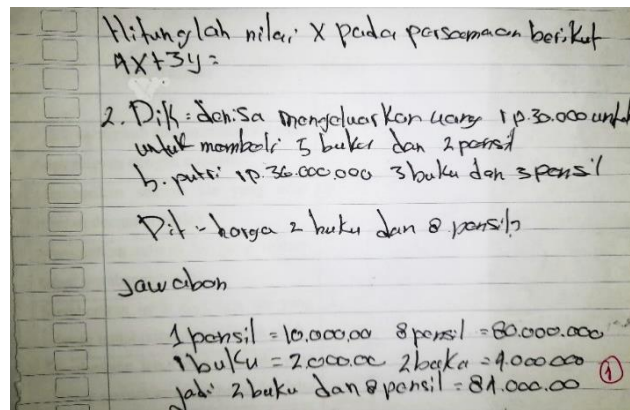 Hitunglah nilai x pada persamaan berikut
4x+3y=
2. Dik = denisa mengeluarkan uang rp.30.000 untu
untuk membeli 5 buku dan 2 pensil
b. putri rp.36.000.000 3 buku dan 3 pensil
Dit - harga 2 buku dan 8 pensil?
Jawaban
1 pensil = 10.000.00 8 pensil = 80.000.000
1 buku = 2.000.00 2 buku = 4.000.000
①
jadi 2 buku dan 8 pensil = 84.000.00